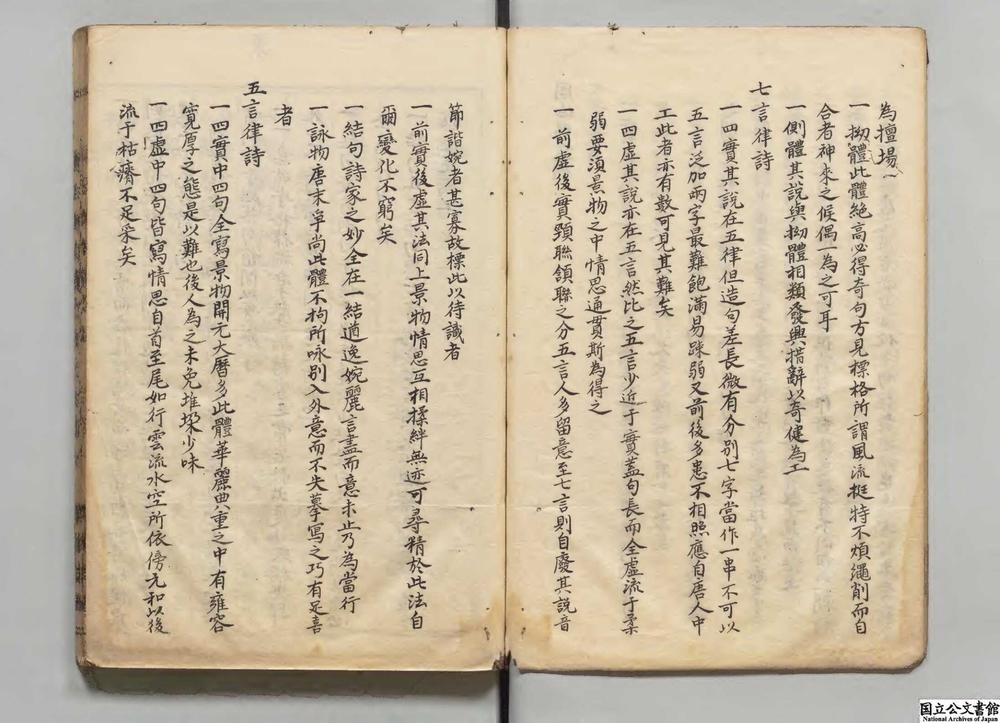 為擅場
一拗體此體絕高必得奇句方見標格所謂風流挺特不煩繩削而自
合者神來之候偶一為之可耳
一側體其說與拗體相類發興措辭以奇健為工
七言律詩
一四實其說在五律但造句差長微有分別七字當作一串不可以
五言泛加兩字最難飽滿易踈弱又前後多患不相照應自唐人中
工此者亦有數可見其難矣
一四虛其說亦在五言然比之五言少近于實蓋句長而全虛流于柔
弱要須景物之中情思通貫斯為得之
一前虛後實頸聯頷聯之分五言人多留意至七言則自廢其說音
節諧婉者甚寡故標此以待識者
一前實後虛其法同上景物情思互相揉絆無迹可尋精於此法自
爾變化不窮矣
一結句詩家之妙全在一結遒逸婉麗言盡而意未止乃為當行
一詠物唐末爭尚此體不拘所咏別入外意而不失摹寫之巧有足喜
者
五言律詩
一四實中四句全寫景物開元大曆多此體華麗典重之中有雍容
寬厚之態是以難也後人為之未免堆垛少味
一四虛中四句皆寫情思自首至尾如行雲流水空所依傍元和以後
流于枯瘠不足采矣
国立公文書館
National Archives of Japan